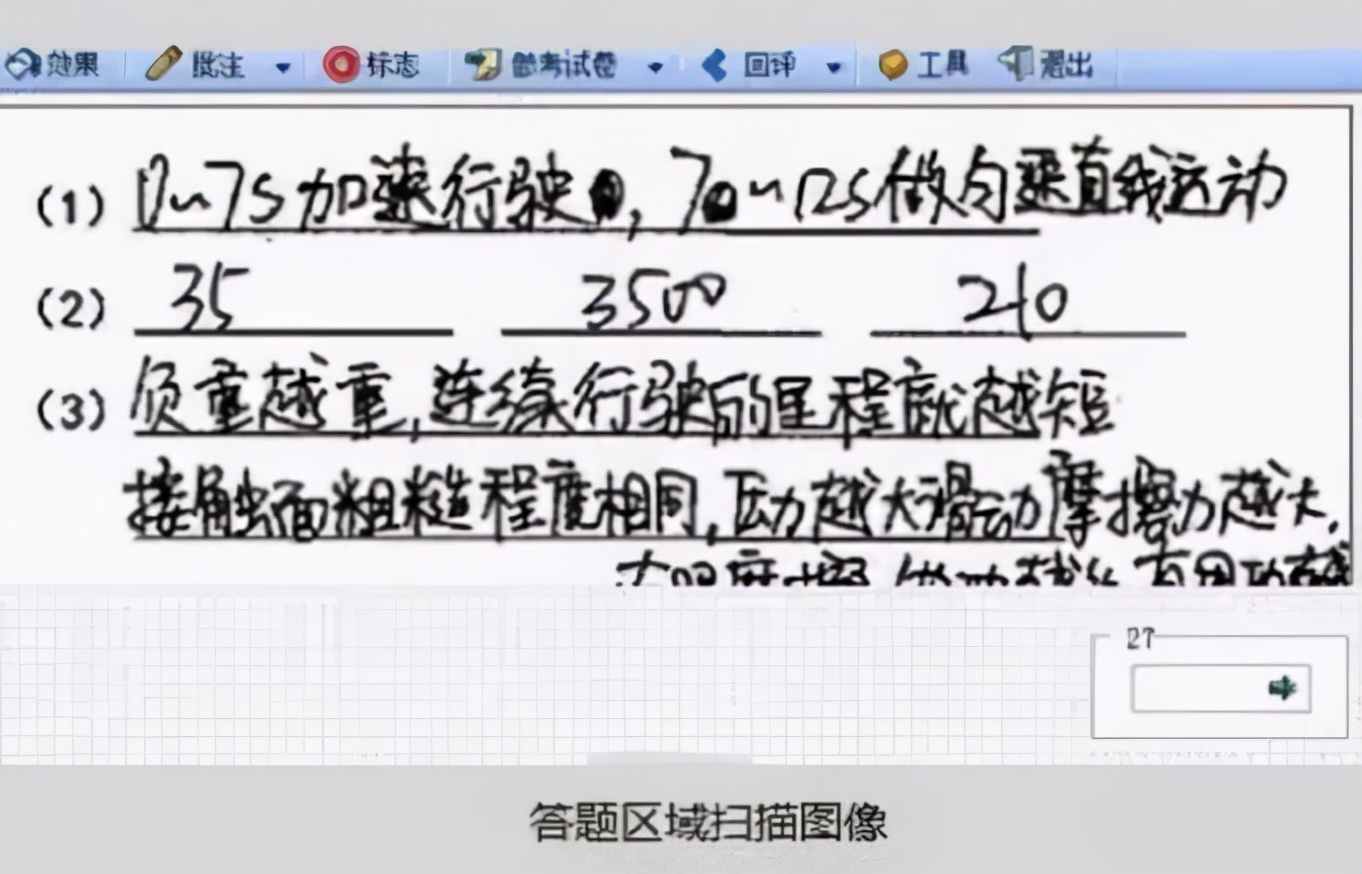 效果 批注 标志 参考试卷 回评 工具 退出
(1) 0~7s加速行驶，7~12s做匀速直线运动
(2) 35 3500 210
(3) 负重越重,连续行驶的里程就越短
接触面粗糙程度相同,压力越大滑动摩擦力越大,
27
答题区域扫描图像